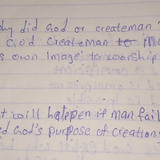 hy did God or createman
God createman to
s own image to worship
t will hatepen if man fail
d God's purpose of creation